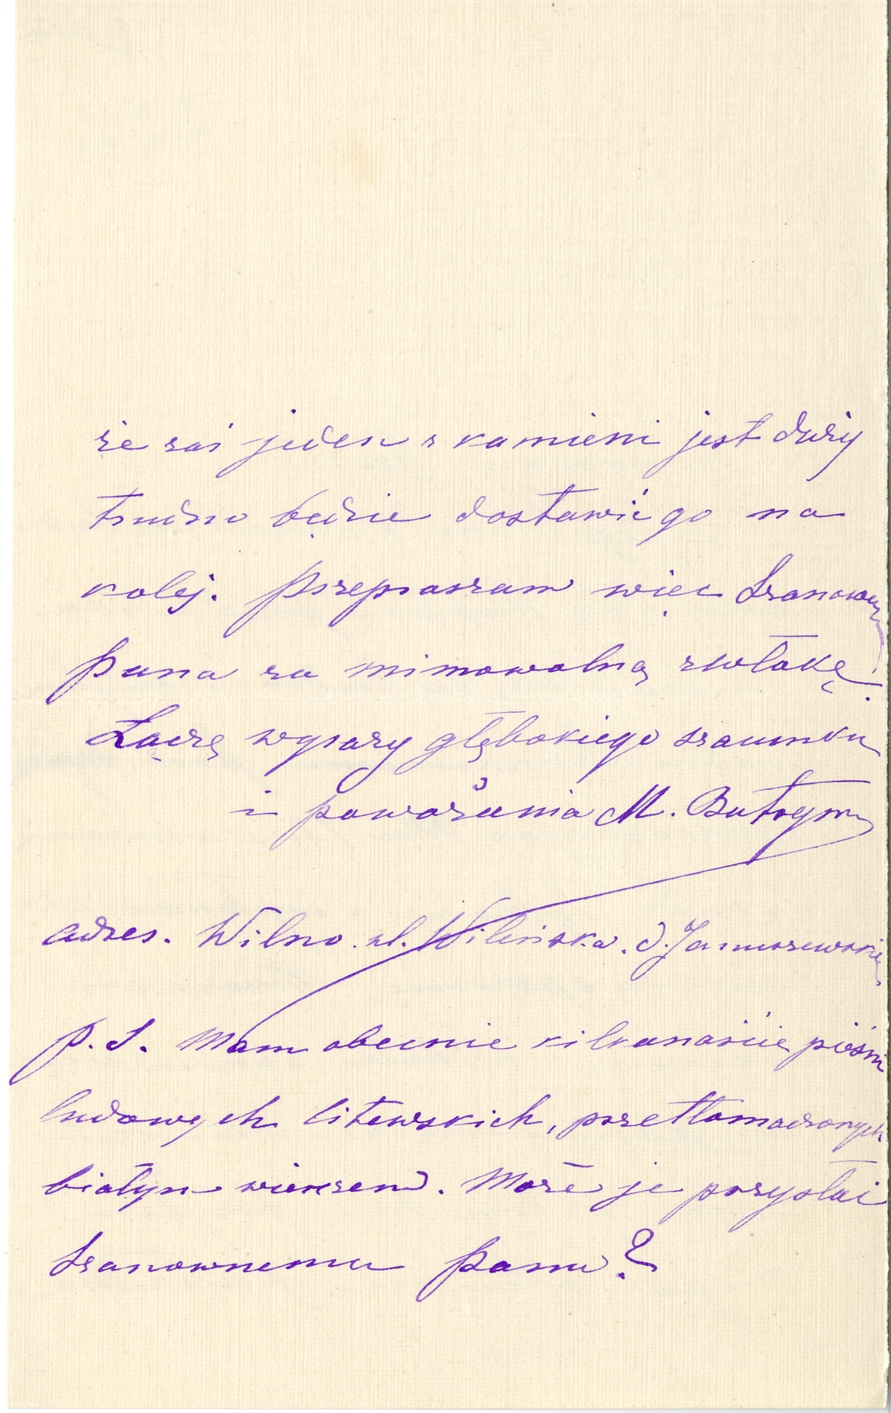 że zaś jeden z kamieni jest duży
trudno będzie dostawić go na
kolej. Przepraszam więc Szanownego
Pana za mimowolną zwłokę.
Łączę wyrazy głębokiego szacunku
i poważania M. Butrym
adres. Wilno. ul. Wileńska. d. Januszewskiej
P. S. Mam obecnie kilkanaście pieśni
ludowych litewskich, przetłomaczonych
białym wierszem. Może je przysłać
Szanownemu Panu?